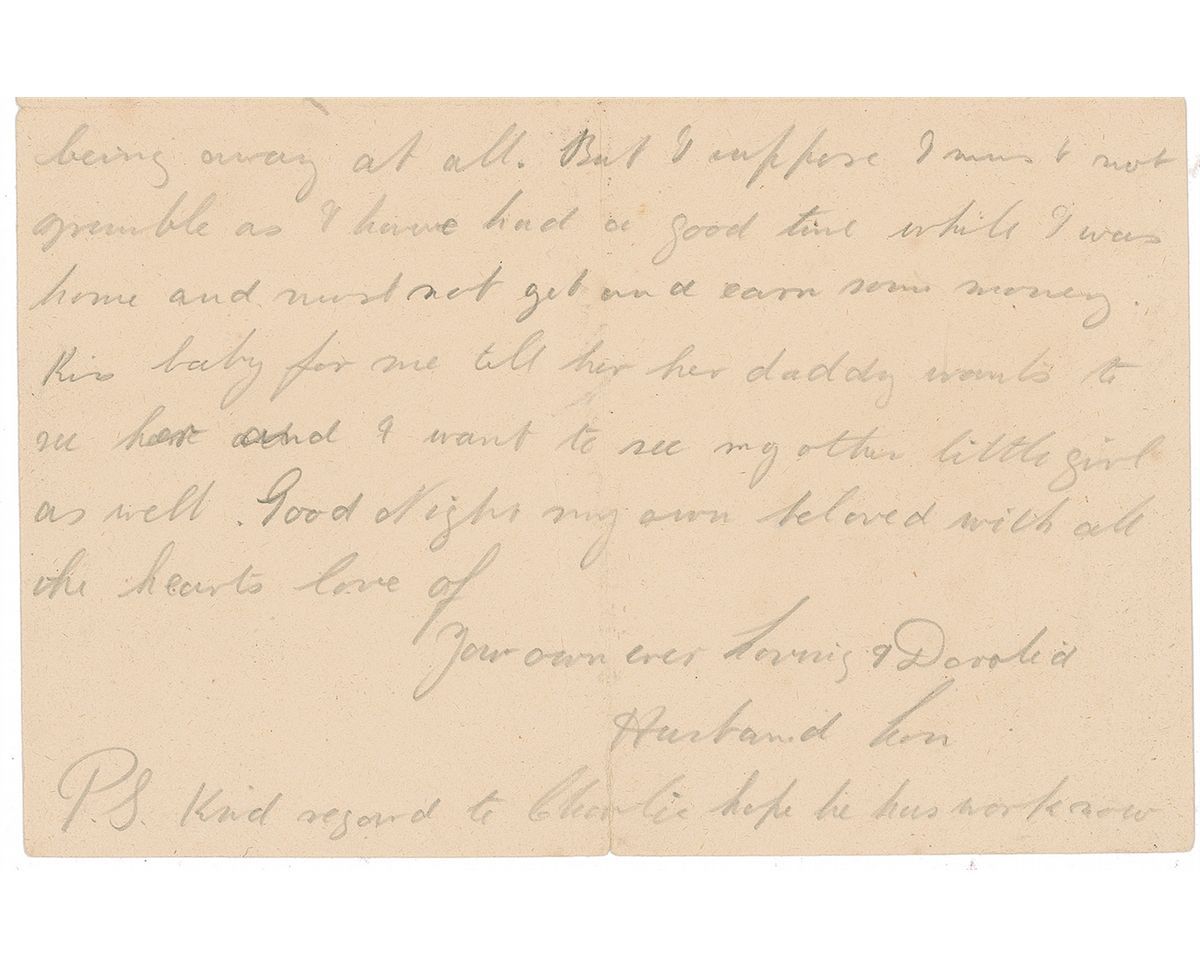 being away at all. But I suppose I must not
grumble as I have had a good time while I was
home and must not get and earn some money.
Kiss baby for me tell her her daddy wants to
see her and I want to see my other little girl
as well. Good Night my own beloved with all
the hearts love of
Your own ever Loving & Devoted
Husband Len
P.S. Kind regard to Charlie hope he has work now